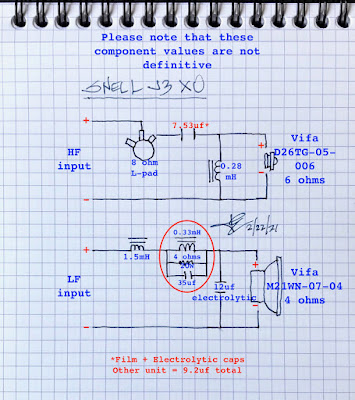 Please note that these
component values are not
definitive
SNELL J3 XO
+
7.53uf*
HF
input
8 ohm
L-pad
0.28
mH
+
-
Vifa
D26TG-05-
006
6 ohms
-
2/22/21
+
0.33mH
1.5mH
4 ohms
20W
35uf
LF
input
12uf
electrolytic
+
-
Vifa
M21WN-07-04
4 ohms
-
*Film + Electrolytic caps
Other unit = 9.2uf total